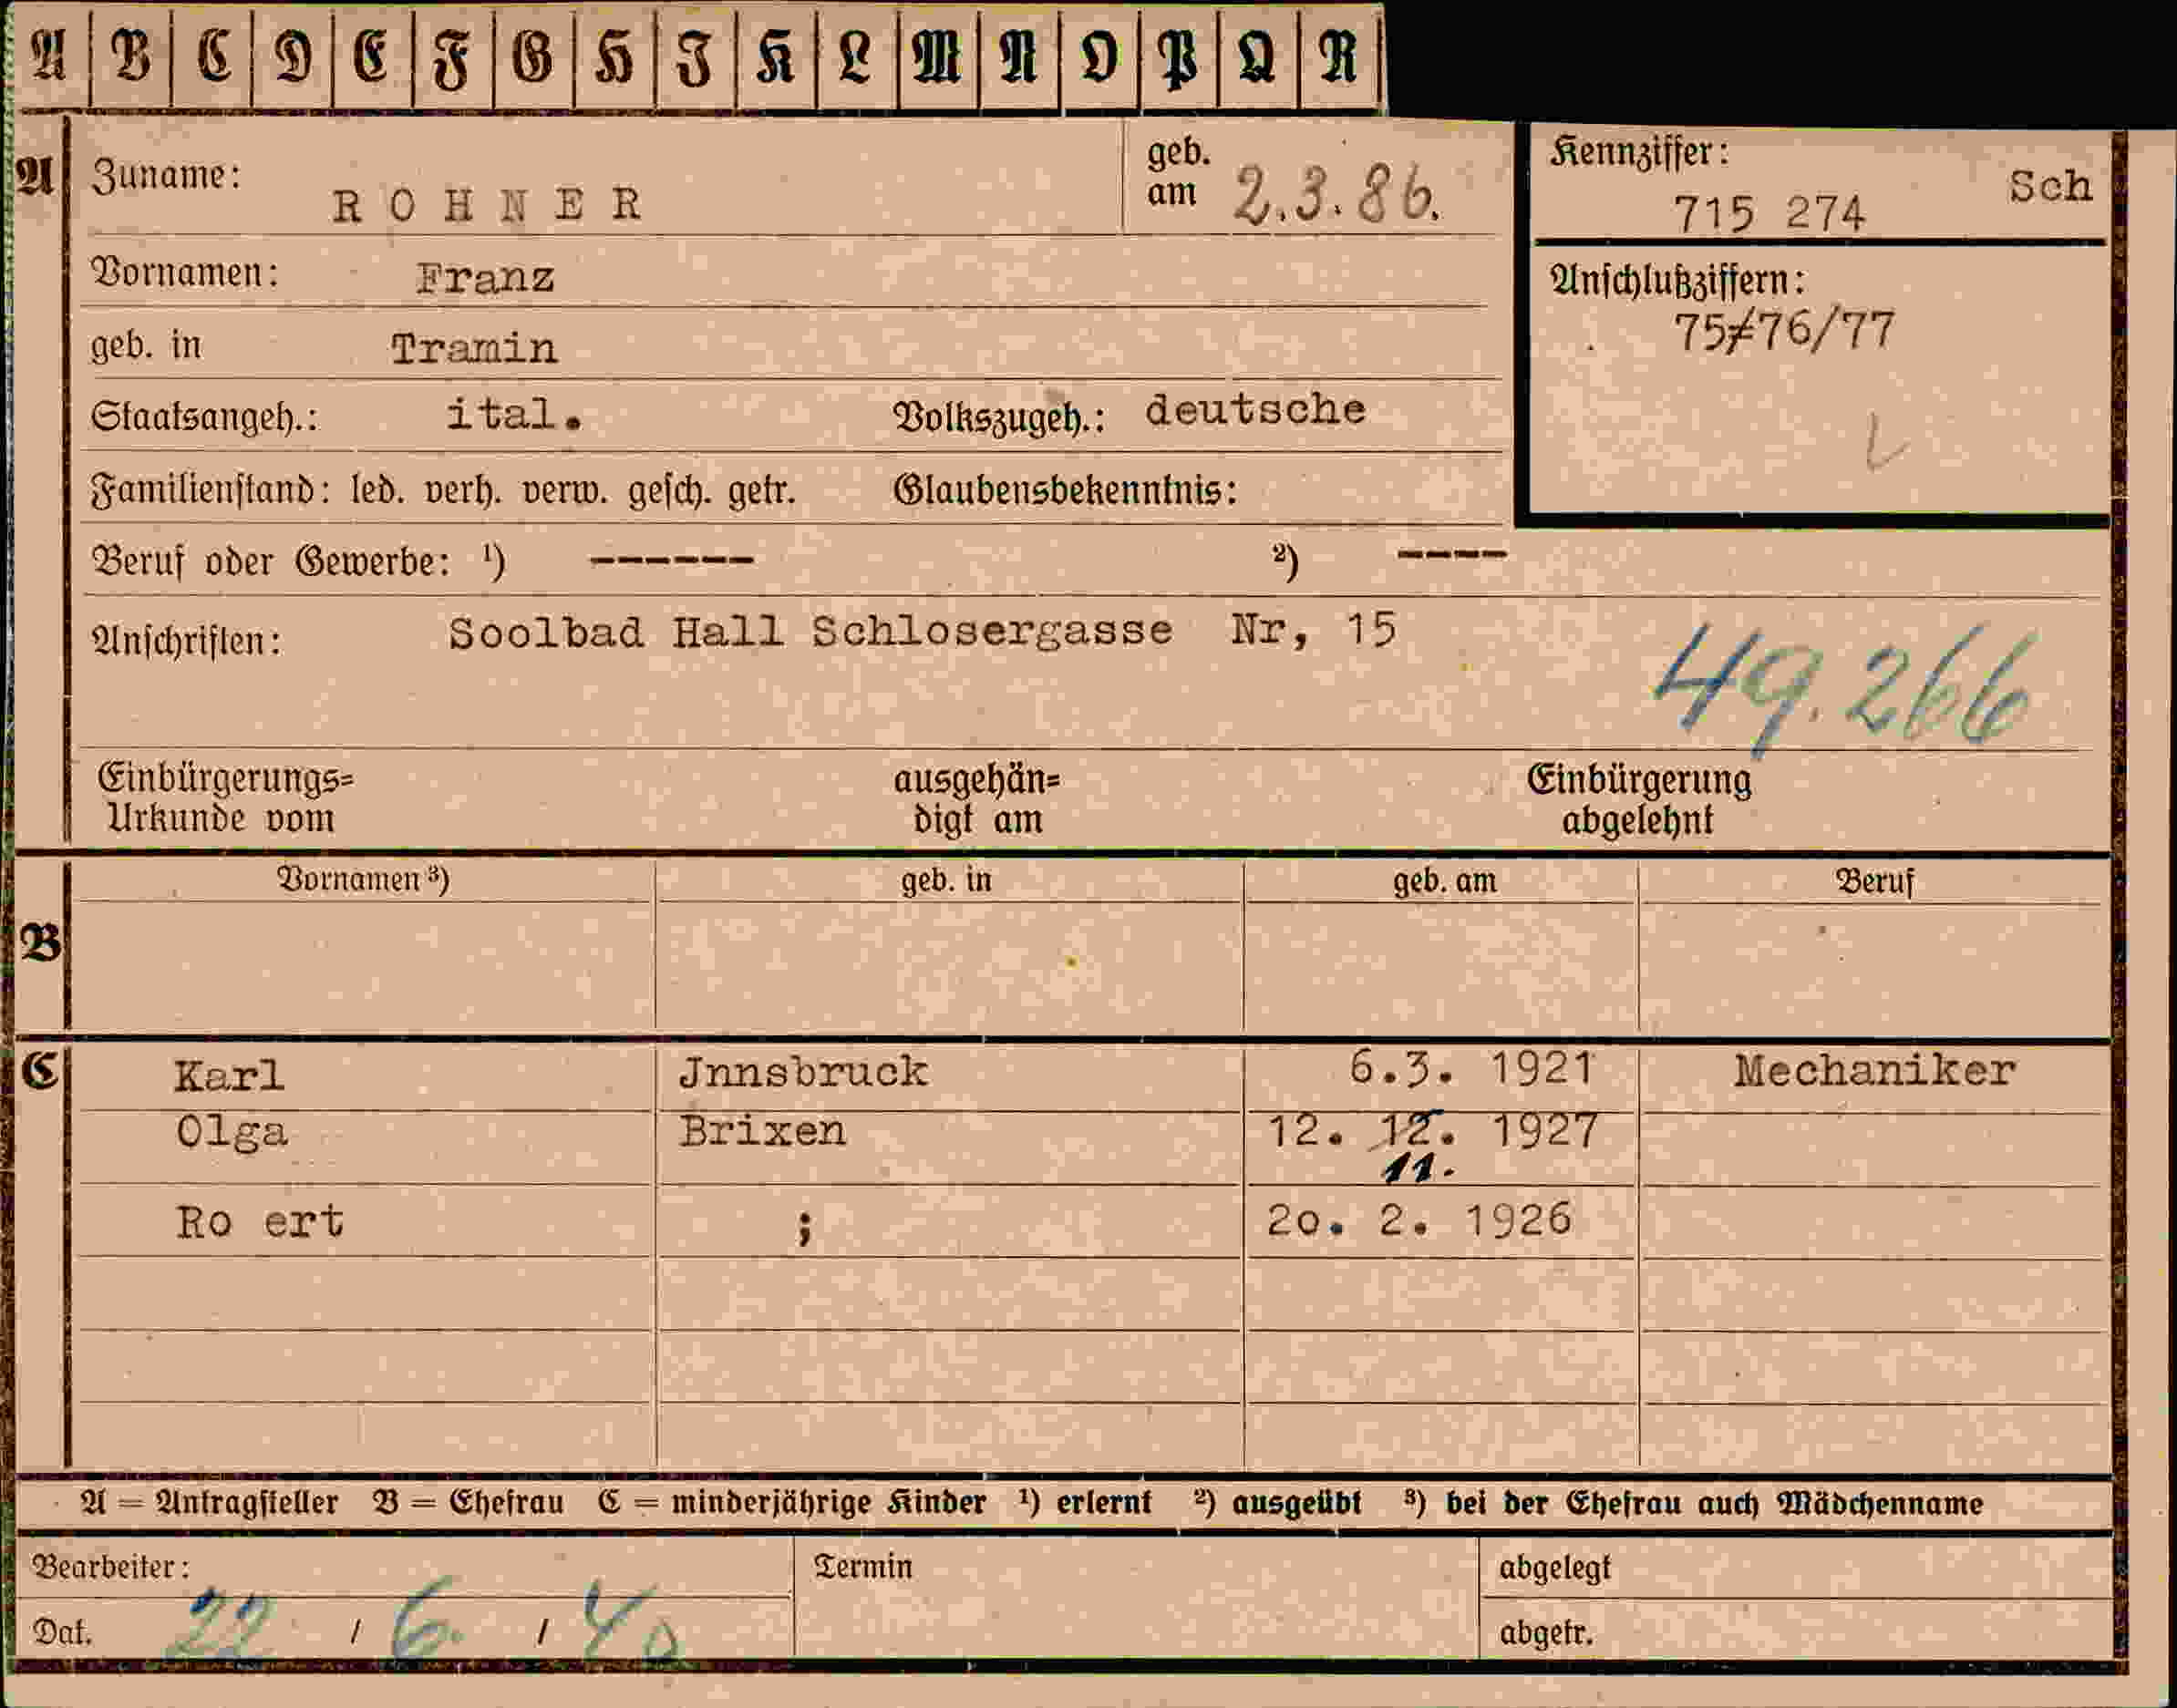 A B C D E F G H I K L M N O P Q R
A Zuname: ROHNER geb. am 2.3.86. Kennziffer: 715 274 Sch
Vornamen: Franz Anschlußziffern:
75≠76/77
geb. in Tramin
Staatsangeh.: ital. Volkszugeh.: deutsche
Familienstand: led. verh. verw. gesch. getr. Glaubensbekenntnis:
Beruf oder Gewerbe: ¹) ------ ²) ----
Anschriften: Soolbad Hall Schlosergasse Nr, 15
49.266
Einbürgerungs= ausgehän= Einbürgerung
Urkunde vom digt am abgelehnt
Vornamen ³) geb. in geb. am Beruf
B
C Karl Jnnsbruck 6.3. 1921 Mechaniker
Olga Brixen 12. 12. 1927
11.
Ro ert ; 20. 2. 1926
A = Antragsteller B = Ehefrau C = minderjährige Kinder ¹) erlernt ²) ausgeübt ³) bei der Ehefrau auch Mädchenname
Bearbeiter: Termin abgelegt
Dat. 22 / 6. / 40 abgetr.